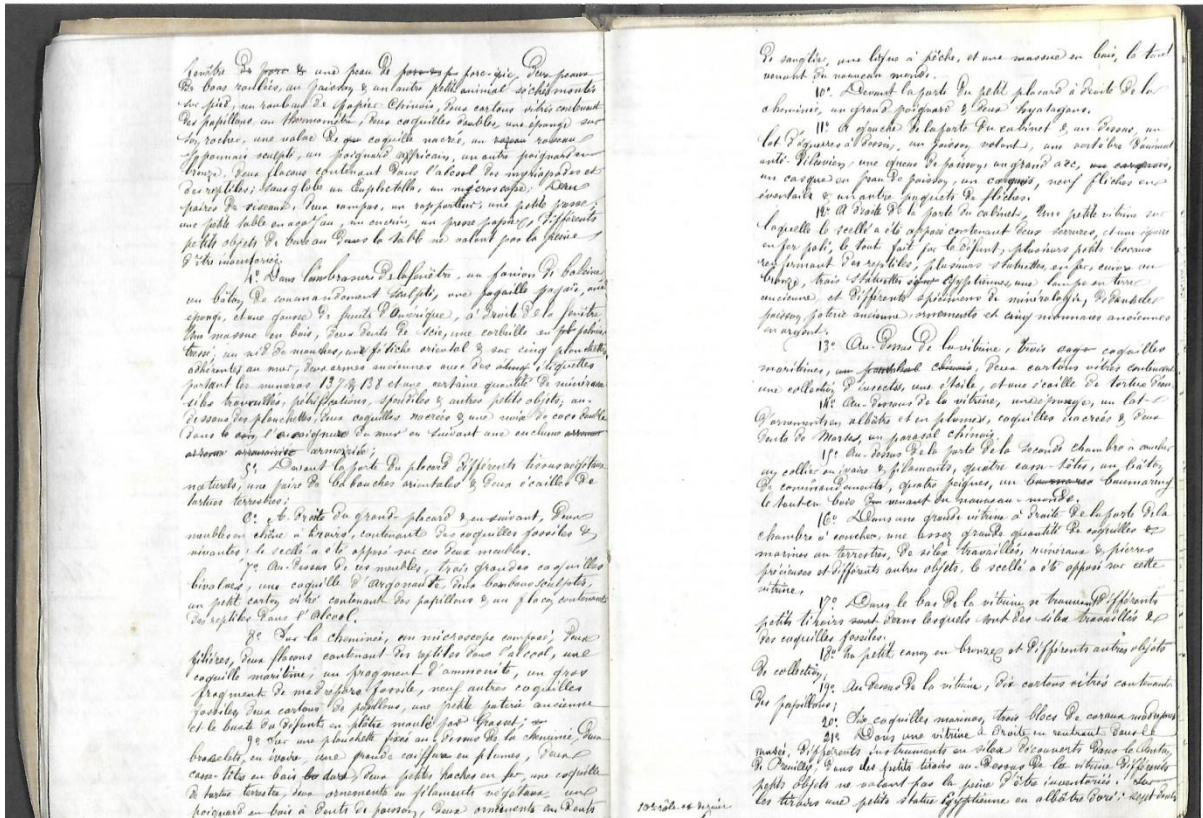 fenêtre & une peau de porc-épic, deux peaux
de boas roulées, un poisson & un autre petit animal séchés montés
sur pied, un rouleau de papier Chinois, deux cartons vitrés contenant
des papillons, un thermomètre, deux coquilles doubles, une éponge sur
son rocher, une valve de coquille nacrée, un roseau
japonnais sculpté, un poignard africain, un autre poignard en
bronze, deux flacons contenant dans l'alcool des myriapodes et
des reptiles; sous globe un Euplectella, un microscope; deux
paires de ciseaux, deux compas, un rapporteur, une petite presse;
une petite table en acajou, un encrier, un presse papier, différents
petits objets de bureau dans la table ne valant pas la peine
d'être inventoriés;
4° Dans l'embrasure de la fenêtre, un fanion de baleine
un bâton de commandement sculpté, une pagaille, une
éponge, et une gousse de fruits d'Amérique, à droite de la fenêtre
une massue en bois, deux dents de scie, une corbeille en
tresse; un nid de mouches, un fétiche oriental & sur cinq planchettes
adhérentes au mur, deux armes anciennes avec des étiquettes
portant les numéros 137 & 138 et une certaine quantité de minéraux
silex travaillés, pétrifications, & autres petits objets; au-
dessous des planchettes, deux coquilles nacrées & une noix de coco double
dans l'encoignure du mur en suivant une enclume
armoricaine;
5° Devant la porte du placard différents tissus végétaux
naturels, une paire de babouches orientales & deux écailles de
tortues terrestres;
6° A droite du grand placard & en suivant, deux
meubles en chêne à tiroirs, contenant des coquilles fossiles &
vivantes; le scellé a été apposé sur ces deux meubles.
7° Au-dessus de ces meubles, trois grandes coquilles
bivalves, une coquille d'argonaute, deux bambous sculptés,
un petit carton vitré contenant des papillons & un flacon contenant
des reptiles dans l'alcool.
8° Sur la cheminée, un microscope composé, deux
filières, deux flacons contenant des reptiles dans l'alcool, une
coquille maritime, un fragment d'ammonite, un gros
fragment de madrépore fossile, neuf autres coquilles
fossiles, deux cartons de papillons, une petite poterie ancienne
et le buste du défunt en plâtre moulé par Grasset;
9° Sur une planchette fixée au-dessus de la cheminée, deux
bracelets en ivoire, une grande coiffure en plumes, deux
casse-têtes en bois, deux petites haches en fer, une coquille
de tortue terrestre, deux ornements en filaments végétaux un
poignard en bois à dents de poisson, deux ornements en dents
de sanglier, une ligne à pêche, et une massue en bois, le tout
venant du nouveau monde.
10° Devant la porte du petit placard à droite de la
cheminée, un grand poignard & deux Yatagans.
11° A gauche de la porte du cabinet & au dessus, un
lot d'équerres à dessin, un poisson volant, une vertèbre d'animal
anté-diluvien, une queue de poisson, un grand arc,
un casque en peau de poisson, un carquois, neuf flèches en
éventails & un autre paquets de flèches.
12° A droite de la porte du cabinet, Une petite vitrine sur
laquelle le scellé a été apposé contenant deux serrures, et une équerre
en fer poli, le tout fait par le défunt, plusieurs petits bocaux
renfermant des reptiles, plusieurs statuettes, en fer, cuivre ou
bronze, trois statuettes égyptiennes, une lampe en terre
ancienne, et différents spécimens de minéralogie,
poisson, poterie ancienne ornements et cinq monnaies anciennes
en argent;
13° Au-dessus de la vitrine, trois coquilles
maritimes, deux cartons vitrés contenant
une collection d'insectes, une étoile, et une écaille de tortue
14° Au-dessous de la vitrine, une éponge, un lot
d'ornements en albâtre et en plumes, coquilles nacrées & deux
dents de Morses, un parasol chinois
15° Au-dessus de la porte de la seconde chambre à coucher
un collier en ivoire & filaments, quatre casse-têtes, un bâton
de commandements, quatre peignes, un boumarang
le tout en bois venant du nouveau-monde.
16° Dans une grande vitrine à droite de la porte de la
chambre à coucher, une assez grande quantité de coquilles
marines ou terrestres, de silex travaillés, minéraux & pierres
précieuses et différents autres objets, le scellé a été apposé sur cette
vitrine.
17° Dans le bas de la vitrine se trouvent différents
petits tiroirs dans lesquels sont des silex travaillés &
des coquilles fossiles.
18° Un petit canon en bronze et différents autres objets
de collection,
19° Au-dessus de la vitrine, dix cartons vitrés contenant
des papillons;
20° Six coquilles marines, trois blocs de coraux madrépores
21° Dans une vitrine à droite en rentrant dans le
musée, différents instruments en silex découverts dans le
de Preuilly, dans des petits tiroirs au-dessous de la vitrine différents
petits objets ne valant pas la peine d'être inventoriés. Sur
les tiroirs une petite statue égyptienne en albâtre doré; sept dents